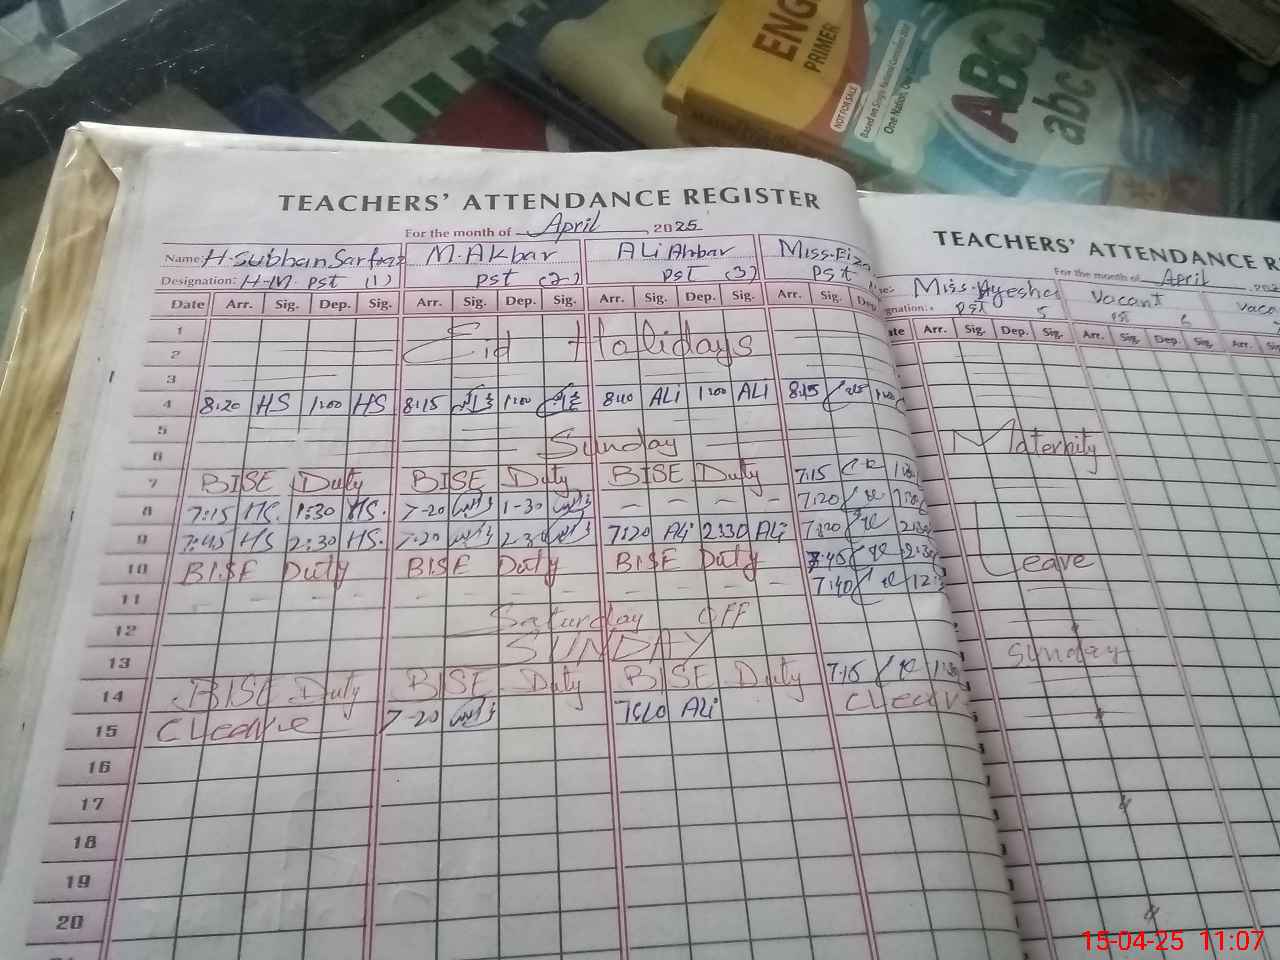 ENG
PRIMER
NOT FOR SALE
Based on Single National Curriculum
One Nation, One
ABC
abc
TEACHERS' ATTENDANCE REGISTER
For the month of April 2025
Name: H. Subhan Sarfraz M. Akbar ALi Akbar Miss. Fiza
Designation: H-M. PST (1) PST (2) PST (3) PST
Date Arr. Sig. Dep. Sig. Arr. Sig. Dep. Sig. Arr. Sig. Dep. Sig. Arr. Sig. Dep.
1
2 Eid Holidays
3
4 8:20 HS 1:00 HS 8:15 1:00 8:10 ALi 1:00 ALi 8:15
5
6 Sunday
7 BISE Duty BISE Duty BISE Duty 7:15
8 7:15 HS. 1:30 HS. 7-20 1-30 - - - - 7:20
9 7:45 HS 2:30 HS. 7-20 2-30 7:20 ALi 2:30 ALi 7:20
10 BISE Duty BISE Duty BISE Duty 7:45
11 - - - - - - - - - - - - 7:40
12 Saturday OFF
13 SUNDAY
14 BISE Duty BISE Duty BISE Duty 7:15
15 C Leave 7-20 ALi C Leav
16
17
18
19
20
TEACHERS' ATTENDANCE R
For the month of April
Miss. Ayesha Vacant Vaca
PST 5 PST 6
Arr. Sig. Dep. Sig. Arr. Sig. Dep. Sig. Arr.
Maternity
Leave
Sunday
15-04-25 11:07